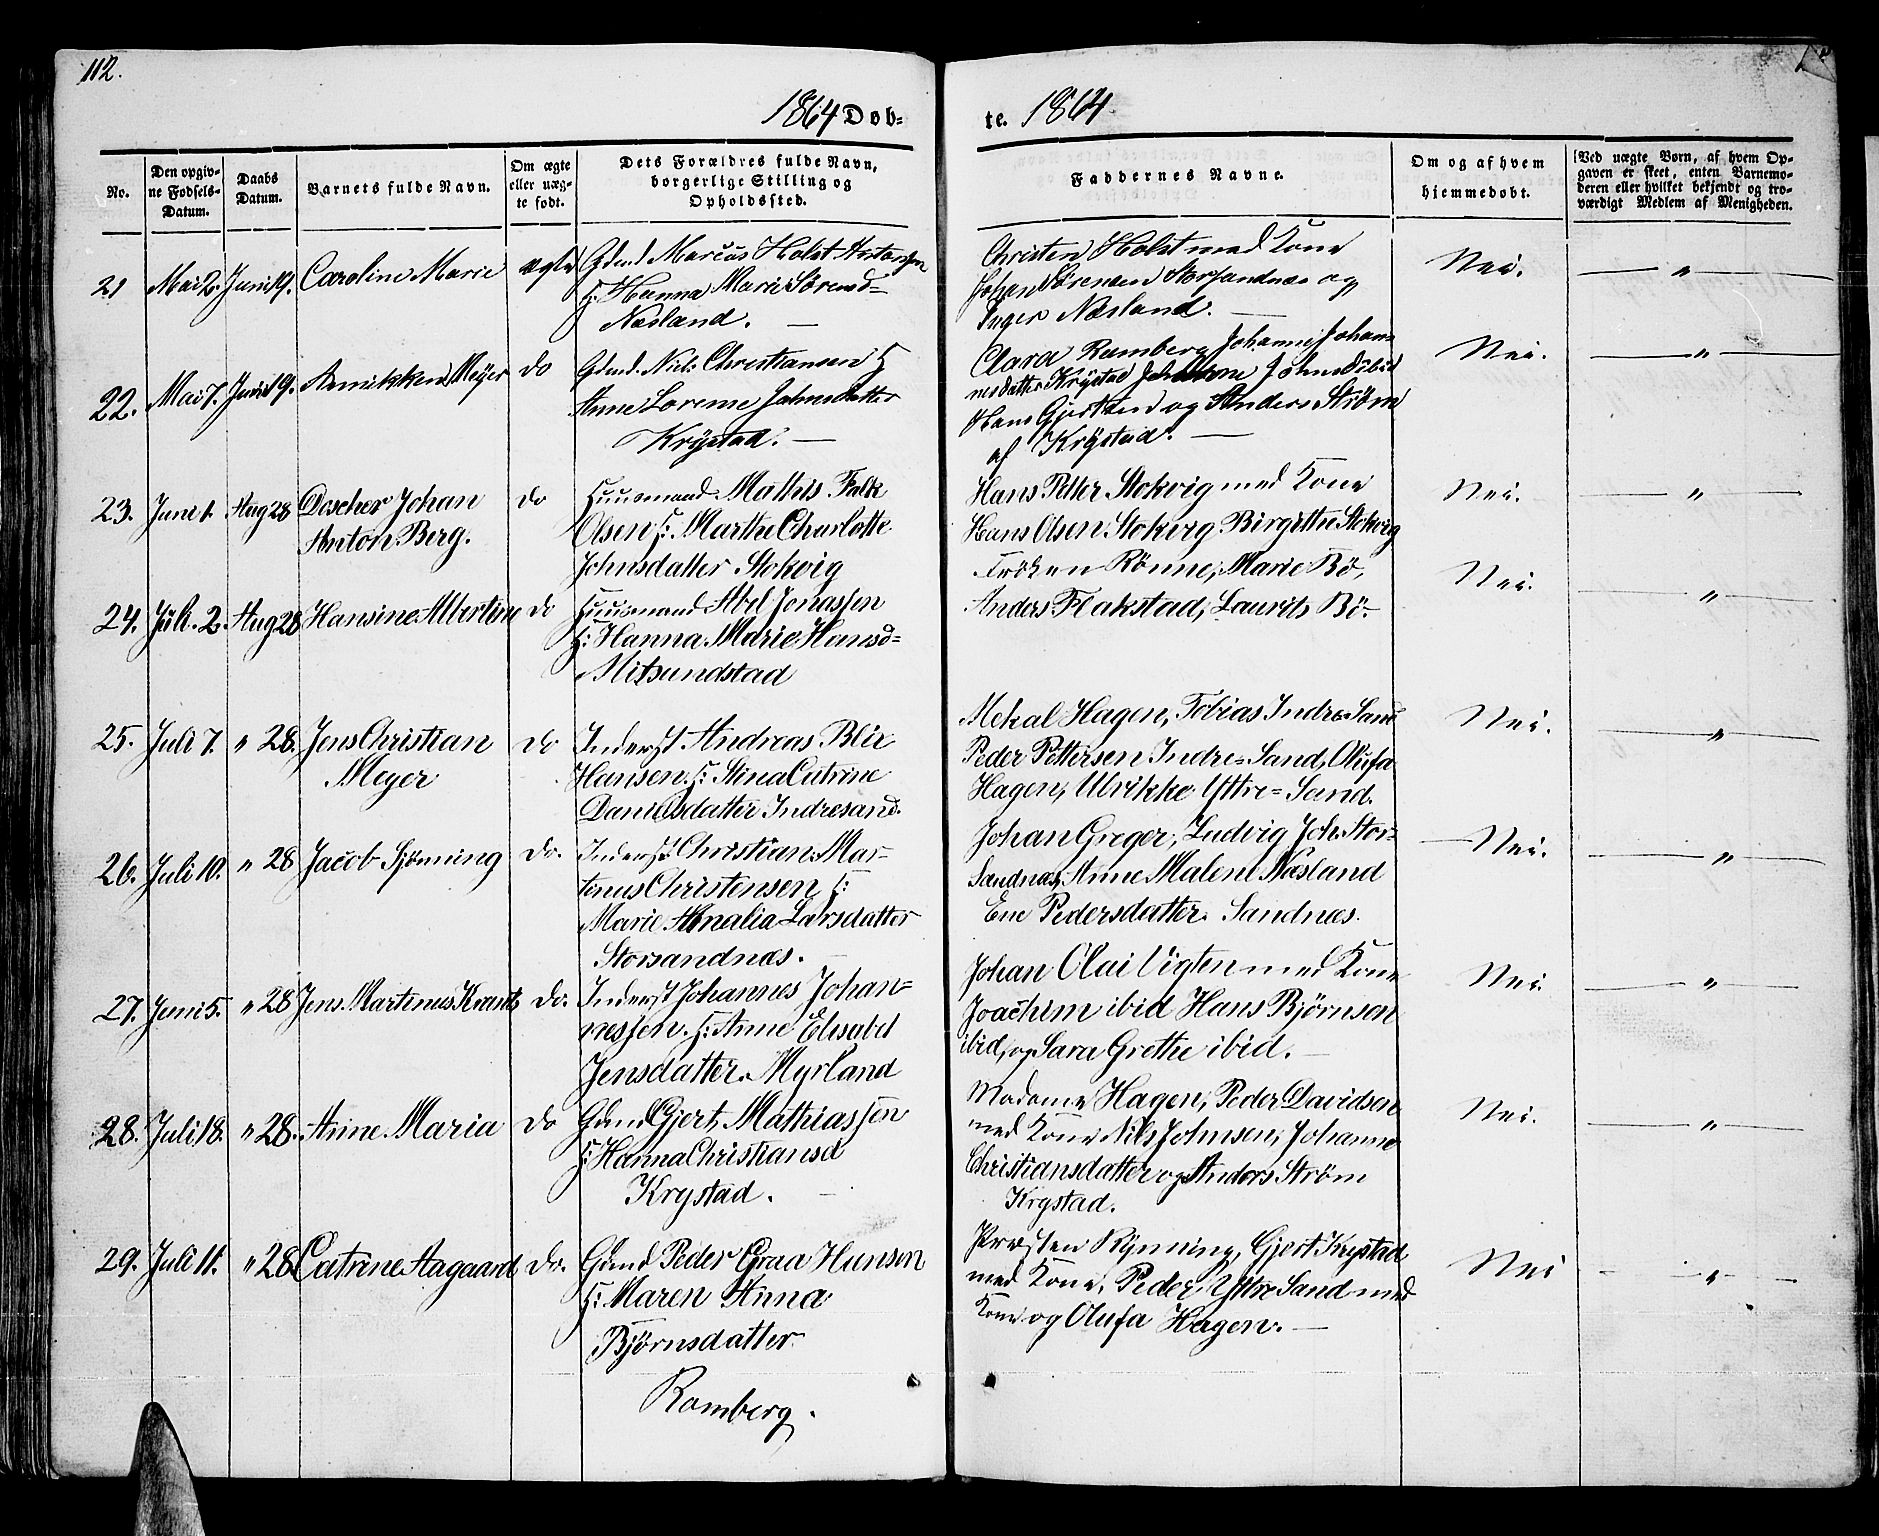 112.
1864 Døb=
te. 1864.
No.
Den opgiv-
ne Fødsels-
Datum.
Daabs
Datum.
Barnets fulde Navn.
Om ægte
eller uæg-
te født.
Dets Forældres fulde Navn,
borgerlige Stilling og
Opholdssted.
Faddernes Navne.
Om og af hvem
hjemmedøbt.
Ved uægte Børn, af hvem Op-
gaven er skeet, enten Barnemo-
deren eller hvilket bekjendt og tro-
værdigt Medlem af Menigheden.
21 Mai 2. Juni 19. Caroline Marie ægte Gdmd. Marcus Holst Antonsen
H: Hanna Marie Sørensd=
Næsland. —
Christen Holst med Kone
Johan Sørensen Storsandnæs og
Inger Næsland. —
Nei. — " —
22. Mai 7. Juni 19. Annikken Meÿer do Gdmd. Niels Christiansen H
Anne Lorense Johnsdatter
Krÿstad. —
Clara Ramberg Johanne Johan
nesdatter Krÿstad Johnsd ibid
Hans Gjertsen og Anders Strøm
af Krÿstad. —
Nei. — " —
23. Juni 1. Aug 28 Doscher Johan
Anton Berg. do Huusmand Mathis Falk
Olsen H: Marthe Charlotte
Johnsdatter Stokvig
Hans Petter Stokvig med Kone
Hans Olsen Stokvig Birgithe Stokvig
Nei. — " —
24. Juli 2. Aug 28 Hansine Albertine do Huusmand Abel Jonassen
H: Hanna Marie Hansd=
Mitsundstad
Frøken Rønne, Marie Bö,
Anders Flakstad, Laurits Bö-
Nei. — " —
25. Juli 7. " 28. Jens Christian
Meyer do Inderst Andreas Blix
Hansen H: Stina Catrine
Danielsdatter Indresand.
Mekal Hagen, Tobias Indre Sand
Peder Pettersen Indre=Sand, Olufa
Hagen, Ulrikke Yttre=Sand.
Nei. — " —
26. Juli 10. " 28 Jacob Sjönning do. Inderst Christian Mar-
tenus Christensen H:
Marie Amalia Larsdatter
Storsandnæs.
Johan Greger, Ludvig Joh. Stor=
Sandnæs, Anne Malene Næsland
Ene Pedersdatter Sandnæs.
Nei. — " —
27. Juni 5. " 28 Jens Martinus Krantz do. Inderst Johannes Johan-
nessen H: Anne Elisabet
Jensdatter Myrland
Johan Olai Vigten med Kone
Joachim ibid Hans Bjørnson
ibid, og Sara Grethe ibid. —
Nei. — " —
28. Juli 18. " 28. Anne Maria do Gdmd Gjert Mathiassen
H: Hanna Christiansd
Krystad. —
Madame Hagen, Peder Davidsen
med Kone Nils Johnsen, Johanne
Christiansdatter og Anders Strøm
Krystad.
Nei. — " —
29. Juli 11. " 28 Catrine Aagaard do. Gdmd Peder Graa Hansen
H: Maren Anna
Bjørnsdatter
Ramberg.
Præsten Rÿnning, Gjert Krystad
med Kone, Peder Yttre Sand med
Kone og Olufa Hagen. —
Nei — " —